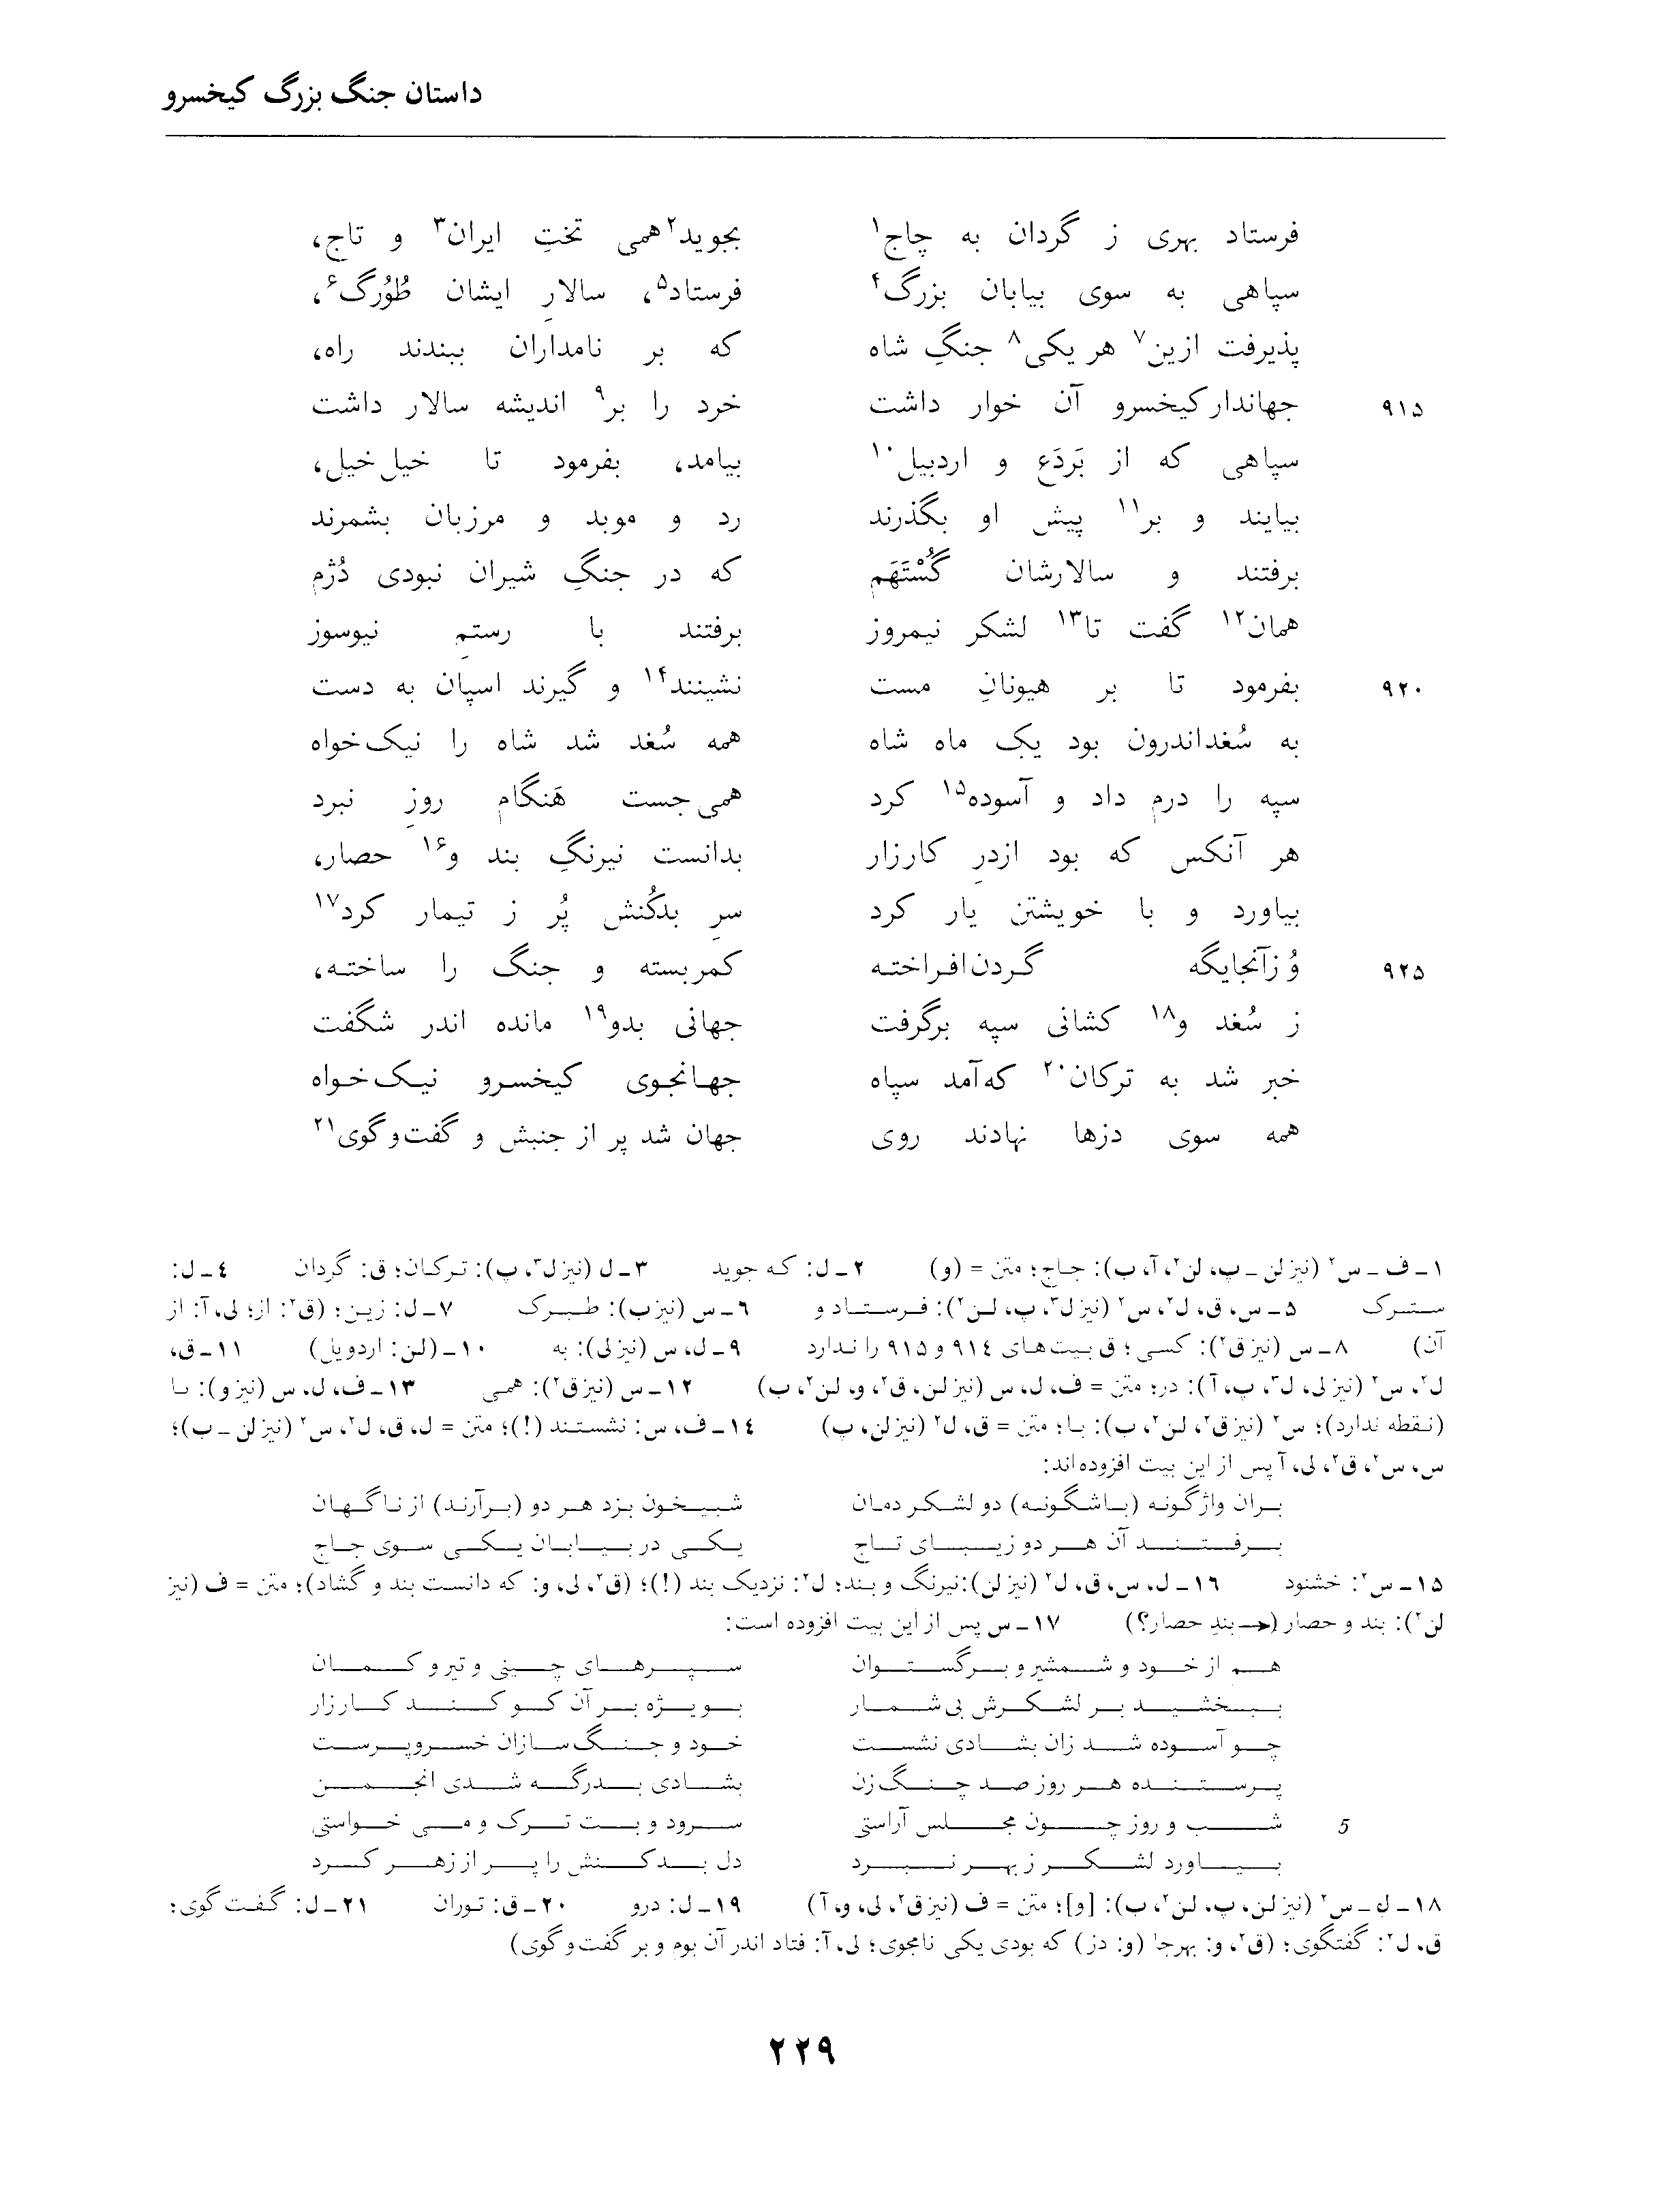 داستان جنگ بزرگ کیخسرو
فرستاد بهری ز گردان به چاج۱ بجوید۲ همی تختِ ایران۳ و تاج،
سپاهی به سوی بیابان بزرگ۴ فرستاد۵، سالارِ ایشان طُوُرگ۶،
پذیرفت ازین۷ هر یکی۸ جنگِ شاه که بر نامداران ببندند راه،
۹۱۵ جهاندار کیخسرو آن خوار داشت خرد را بر۹ اندیشه سالار داشت
سپاهی که از بَردَع و اردبیل۱۰ بیامد، بفرمود تا خیل خیل،
بیایند و بر۱۱ پیش او بگذرند رد و موبد و مرزبان بشمرند
برفتند و سالارشان گُسْتَهَم که در جنگِ شیران نبودی دُژم
همان۱۲ گفت تا۱۳ لشکر نیمروز برفتند با رستمِ نیوسوز
۹۲۰ بفرمود تا بر هیونانِ مست نشینند۱۴ و گیرند اسپان به دست
به سُغداندرون بود یک ماه شاه همه سُغد شد شاه را نیک‌خواه
سپه را درم داد و آسوده۱۵ کرد همی‌جست هَنگامِ روزِ نبرد
هر آنکس که بود ازدرِ کارزار بدانست نیرنگِ بند و۱۶ حصار،
بیاورد و با خویشتن یار کرد سرِ بدکُنش پُر ز تیمار کرد۱۷
۹۲۵ وُ زآنجایگه گردن‌افراخته کمربسته و جنگ را ساخته،
ز سُغد و۱۸ کشانی سپه برگرفت جهانی بدو۱۹ مانده اندر شگفت
خبر شد به ترکان۲۰ که‌آمد سپاه جهانجوی کیخسرو نیک‌خواه
همه سوی دزها نهادند روی جهان شد پر از جنبش و گفت‌و‌گوی۲۱
۱ـ ف ـ س۲ (نیز لن ـ پ، لن۲، آ، ب): جاج؛ متن = (و) ۲ـ ل: که جوید ۳ـ ل (نیز ل۳، پ): ترکان؛ ق: گردان ٤ـ ل:
سترک ۵ـ س، ق، ل۲، س۲ (نیز ل۳، پ، لن۲): فرستاد و ۶ـ س (نیز ب): طبرک ۷ـ ل: زین؛ (ق۲: از؛ لی، آ: از
آن) ۸ـ س (نیز ق۲): کسی؛ ق بیت‌های ۹۱٤ و ۹۱۵ را ندارد ۹ـ ل، س (نیز لی): به ۱۰ـ (لن: اردویل) ۱۱ـ ق،
ل۲، س۲ (نیز لی، ل۳، پ، آ): در؛ متن = ف، ل، س (نیز لن، ق۲، و، لن۲، ب) ۱۲ـ س (نیز ق۲): همی ۱۳ـ ف، ل، س (نیز و): با
(نقطه ندارد)؛ س۲ (نیز ق۲، لن۲، ب): با؛ متن = ق، ل۲ (نیز لن، پ) ۱٤ـ ف، س: نشستند (!)؛ متن = ل، ق، ل۲، س۲ (نیز لن ـ ب)؛
س، س۲، ق۲، لی، آ پس از این بیت افزوده‌اند:
بران واژگونه (باشگونه) دو لشکر دمان شبیخون بزد هر دو (برآرند) از ناگهان
برفتند آن هر دو زیبای تاج یکی در بیابان یکی سوی جاج
۱۵ـ س۲: خشنود ۱۶ـ ل، س، ق، ل۲ (نیز لن): نیرنگ و بند؛ ل۲: نزدیک بند (!)؛ (ق۲، لی، و: که دانست بند و گشاد)؛ متن = ف (نیز
لن۲): بند و حصار (← بندِ حصار؟) ۱۷ـ س پس از این بیت افزوده است:
هم از خود و شمشیر و برگستوان سپرهای چینی و تیر و کمان
ببخشید بر لشکرش بی‌شمار بویژه بر آن کو کند کارزار
چو آسوده شد زان بشادی نشست خود و جنگ‌سازان خسروپرست
پرستنده هر روز صد چنگ‌زن بشادی بدرگه شدی انجمن
5 شب و روز چون مجلس آراستی سرود و بت ترک و می خواستی
بیاورد لشکر ز بهر نبرد دل بدکنش را پر از زهر کرد
۱۸ـ ل ـ س۲ (نیز لن، پ، لن۲، ب): [و]؛ متن = ف (نیز ق۲، لی، و، آ) ۱۹ـ ل: درو ۲۰ـ ق: توران ۲۱ـ ل: گفت گوی؛
ق، ل۲: گفتگوی؛ (ق۲، و: بهرجا (و: دز) که بودی یکی نامجوی؛ لی، آ: فتاد اندر آن بوم و بر گفت و گوی)
۲۲۹